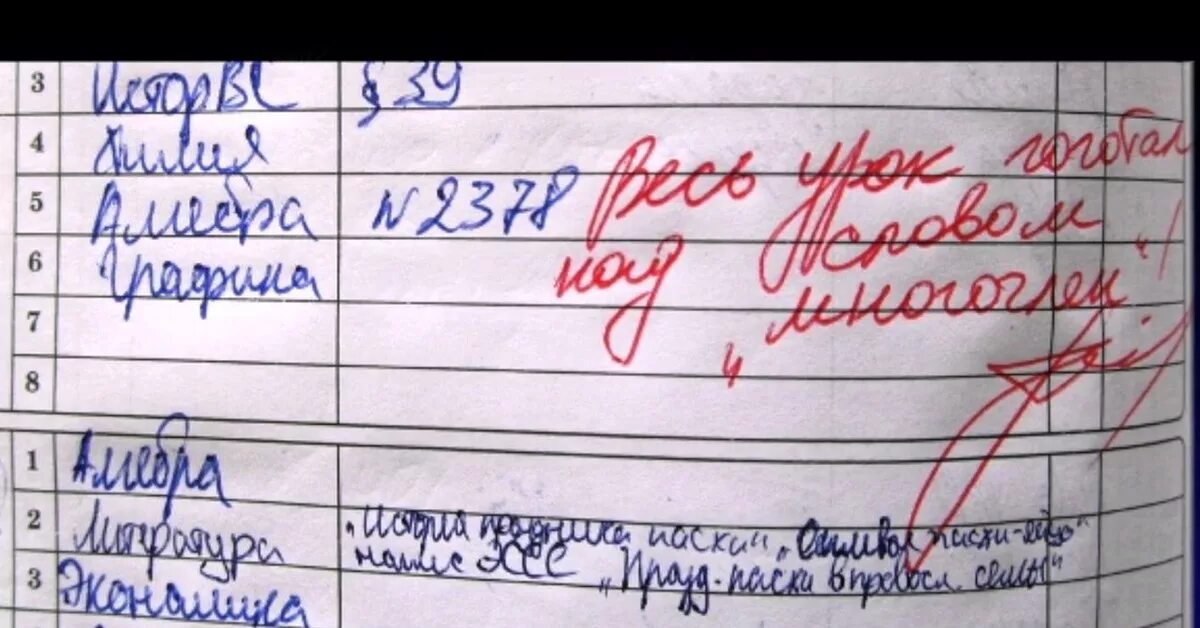 3 Истор ВС § 39
4 Химия
5 Алгебра N 2378
6 Графика
7
8
Весь урок гоготал
над словом
"многочлен"!
1 Алгебра
2 Литература "История праздника пасхи" "Символ пасхи-яйцо"
напис ЭССЕ "Празд. пасхи в правосл. семье"
3 Экономика